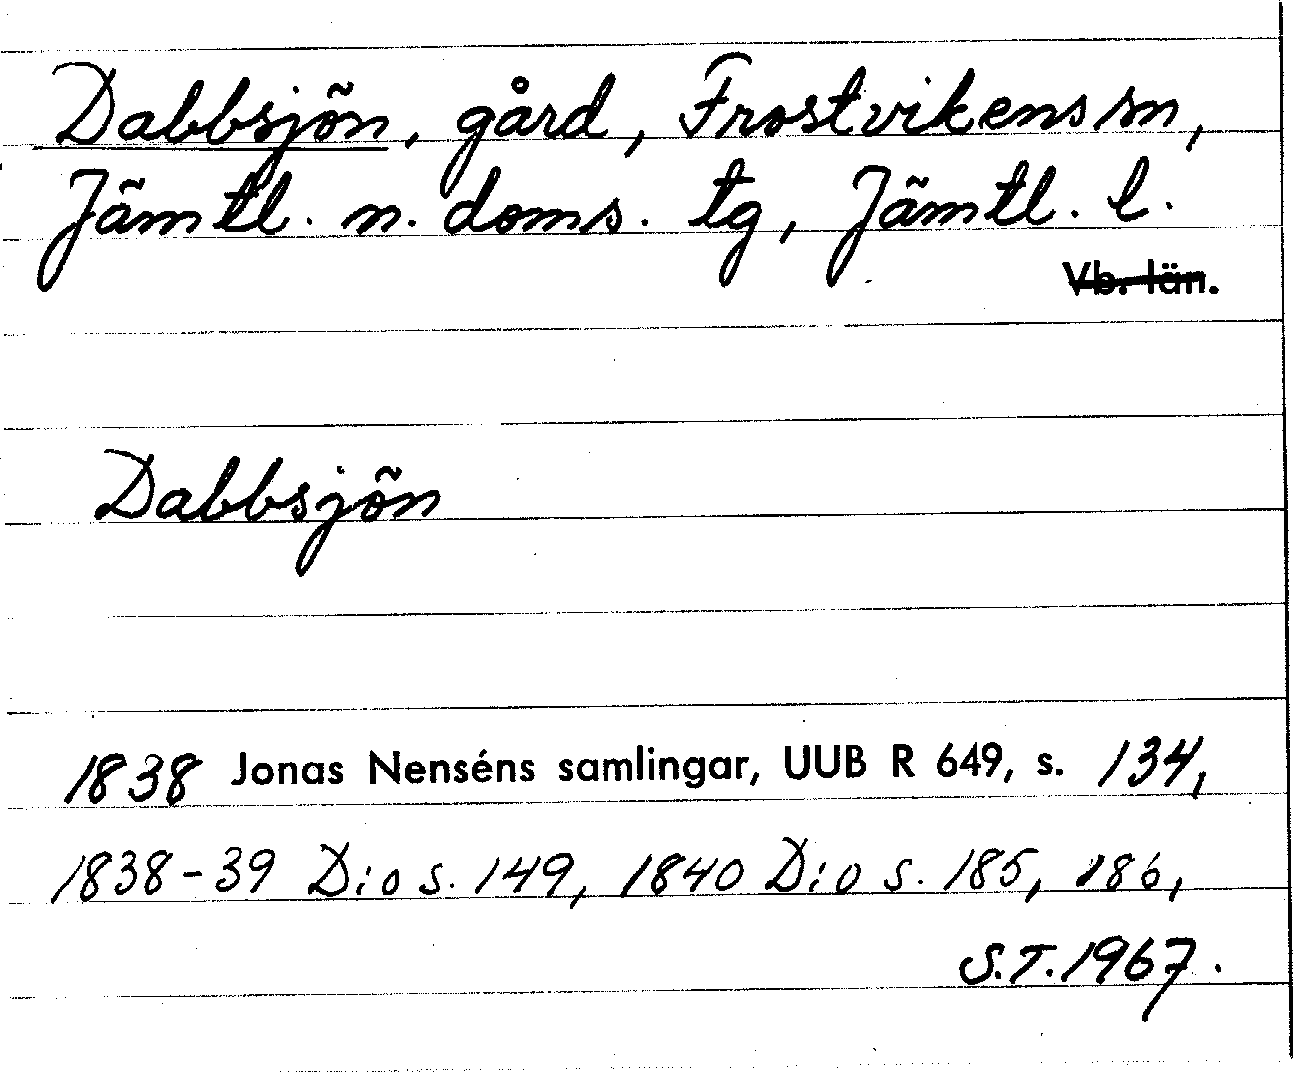 Dabbsjön, gård, Frostvikens sn,
Jämtl. n. doms. tg, Jämtl. l.
Vb. län.
Dabbsjön
1838 Jonas Nenséns samlingar, UUB R 649, s. 134,
1838-39 D:o s. 149, 1840 D:o s. 185, 186,
S.T. 1967.